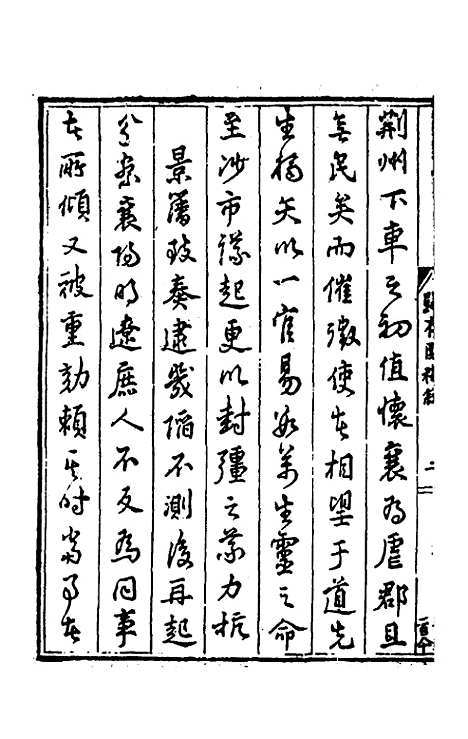 荊州下車之初值懷襄為虐郡且
無民矣而催徵使者相望于道先
生獨矢以一官易數萬生靈之命
至沙市議起更以封疆之故力抗
景藩致奏逮幾陷不測後再起
分巡襄陽時遼庶人不反為同事
者所傾又被重劾賴其時當事者